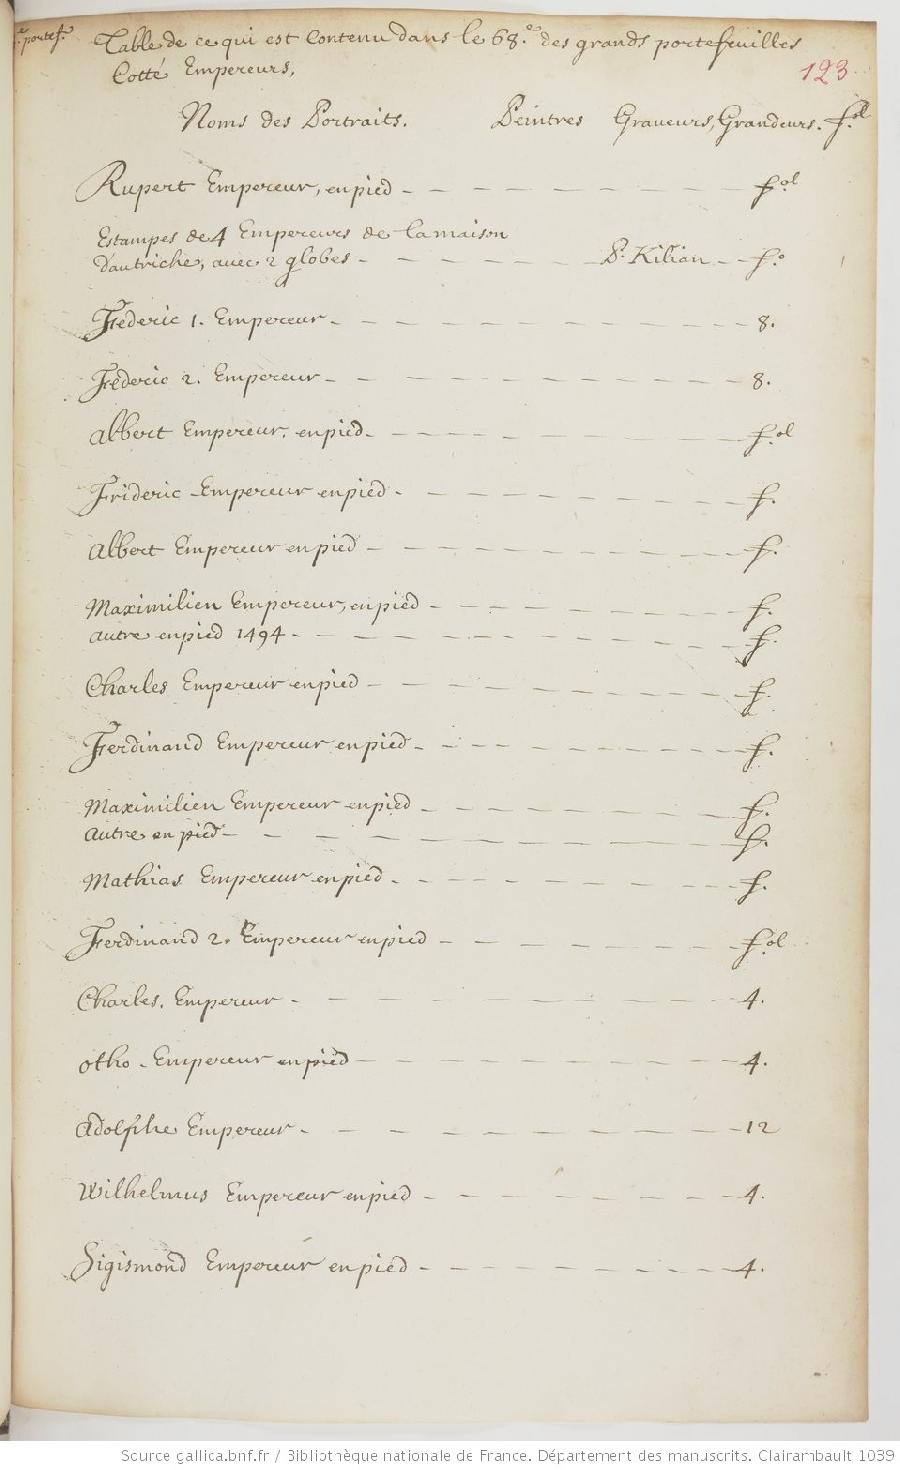 portef.
Table de ce qui est Contenu dans le 68.e des grands portefeuilles
Cotté Empereurs.
123
Noms des Portraits. Peintres Graveurs, Grandeurs. f.ol
Rupert Empereur, en pied - f.ol
Estampes de 4 Empereurs de la maison
D'autriche, avec 2 globes - P. Kilian - f.o
Féderic 1. Empereur - 8.
Féderic 2. Empereur - 8.
Albert Empereur, en pied - f.ol
Frideric Empereur en pied - f.
Albert Empereur en pied - f.
Maximilien Empereur, en pied - f.
autre en pied 1494 - f.
Charles Empereur en pied - f.
Ferdinand Empereur en pied - f.
Maximilien Empereur en pied - f.
autre en pied - f.
Mathias Empereur en pied - f.
Ferdinand 2. Empereur en pied - f.ol
Charles. Empereur - 4.
otho - Empereur en pied - 4.
Adolphe Empereur - 12
Wilhelmus Empereur en pied - 4.
Sigismond Empereur en pied - 4.
Source gallica.bnf.fr / Bibliothèque nationale de France. Département des manuscrits. Clairambault 1039